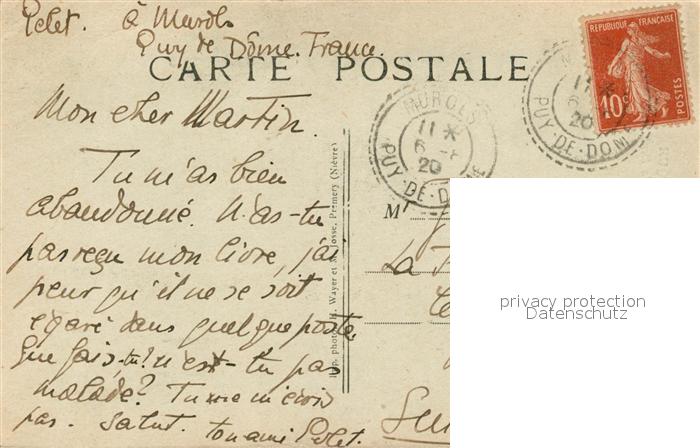 Pelet. à Murols
Puy de Dôme. France.
CARTE POSTALE
REPUBLIQUE FRANÇAISE
10c
POSTES
MUROLS
11 *
6
20
PUY-DE-DOME
MUROLS
11 *
6
20
PUY-DE-DOME
Mon cher Martin.
Tu m'as bien
abandonné. N'as-tu
pas reçu mon livre, j'ai
peur qu'il ne se soit
égaré dans quelque poste,
Que fais-tu? n'est-tu pas
malade? Tu ne m'écris
pas. Salut.
ton ami Pelet.
Imp. photo. H. Wayer et M. Josse, Premery (Nièvre)
Mr
La
privacy protection
Datenschutz